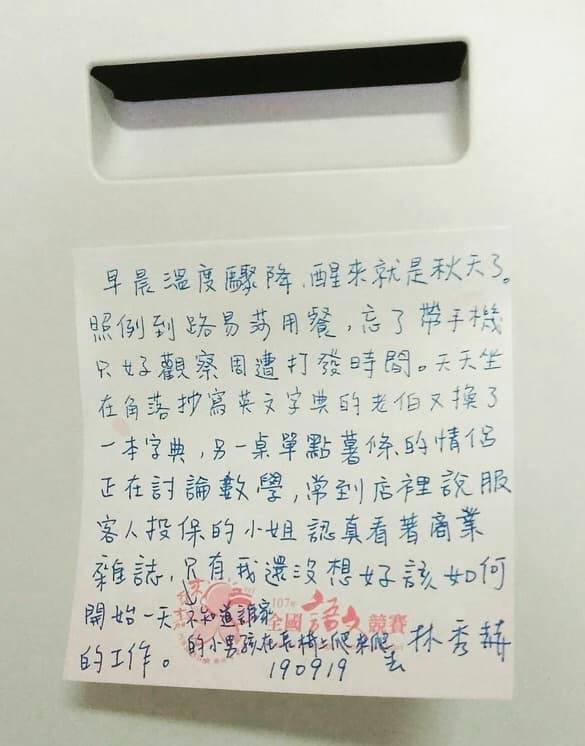 早晨溫度驟降,醒來就是秋天了。
照例到路易莎用餐,忘了帶手機
只好觀察周遭打發時間。天天坐
在角落抄寫英文字典的老伯又換了
一本字典,另一桌單點薯條的情侶
正在討論數學,常到店裡說服
客人投保的小姐認真看著商業
雜誌,只有我還沒想好該如何
開始一天
的工作。
不知道誰家
的小男孩在長椅上爬來爬去
107年
全國語文競賽
林秀赫
190919